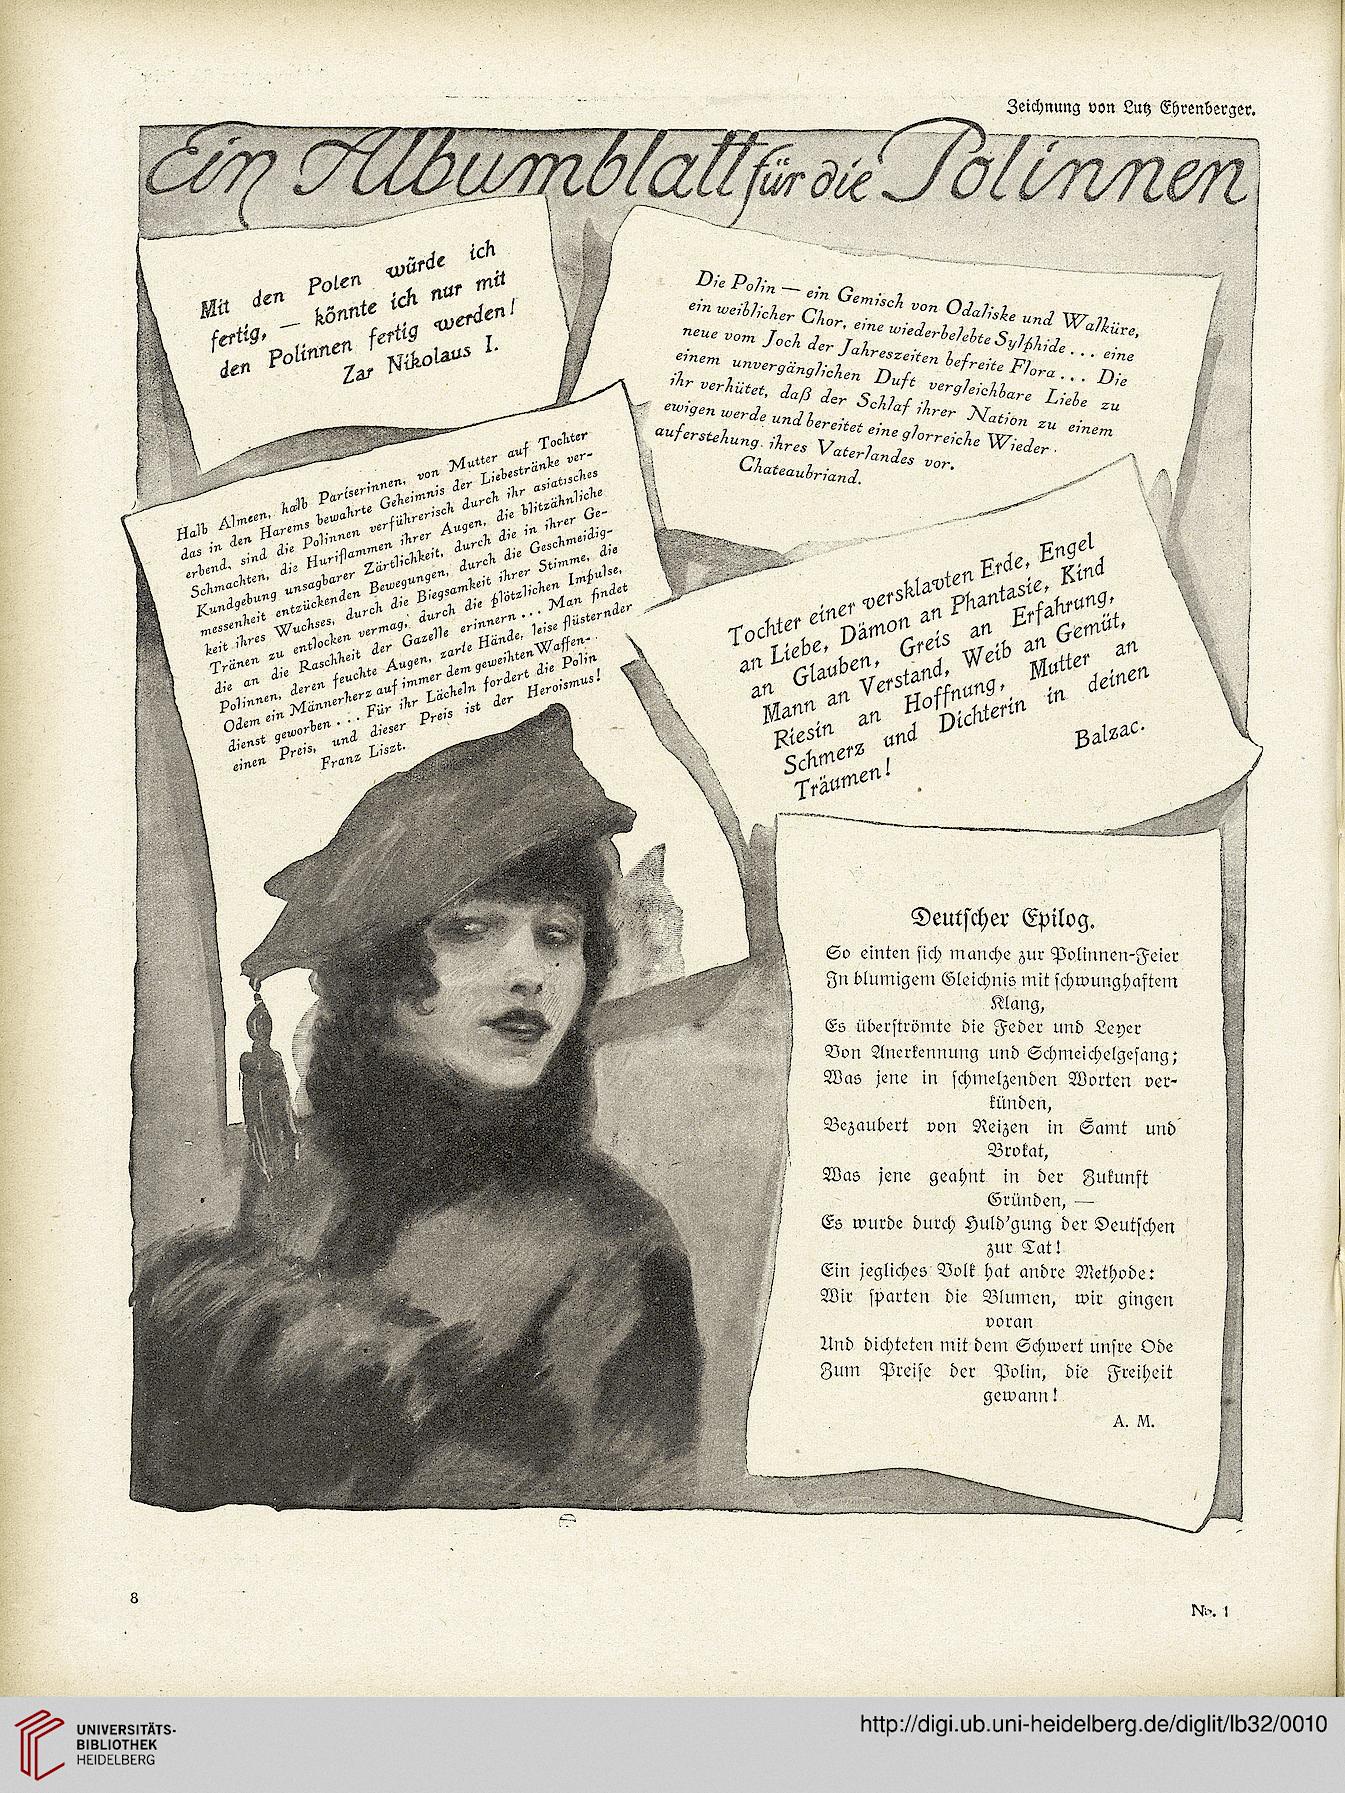 Zeichnung von Lutz Ehrenberger.
Ein Albumblatt für die Polinnen
Mit den Polen würde ich
fertig, — könnte ich nur mit
den Polinnen fertig werden!
Zar Nikolaus I.
Die Polin — ein Gemisch von Odaliske und Walküre,
ein weiblicher Chor, eine wiederbelebte Sylphide . . . eine
neue vom Joch der Jahreszeiten befreite Flora . . . Die
einem unvergänglichen Duft vergleichbare Liebe zu
ihr verhütet, daß der Schlaf ihrer Nation zu einem
ewigen werde und bereitet eine glorreiche Wieder-
auferstehung ihres Vaterlandes vor.
Chateaubriand.
Halb Almeen, halb Pariserinnen, von Mutter auf Tochter
das in den Harems bewahrte Geheimnis der Liebestränke ver-
erbend, sind die Polinnen verführerisch durch ihr asiatisches
Schmachten, die Huriflammen ihrer Augen, die blitzähnliche
Kundgebung unsagbarer Zärtlichkeit, durch die in ihrer Ge-
messenheit entzückenden Bewegungen, durch die Geschmeidig-
keit ihres Wuchses, durch die Biegsamkeit ihrer Stimme, die
Tränen zu entlocken vermag, durch die plötzlichen Impulse,
die an die Raschheit der Gazelle erinnern . . . Man findet
Polinnen, deren feuchte Augen, zarte Hände, leise flüsternder
Odem ein Männerherz auf immer dem geweihten Waffen-
dienst geworben . . . Für ihr Lächeln fordert die Polin
einen Preis, und dieser Preis ist der Heroismus!
Franz Liszt.
Tochter einer versklavten Erde, Engel
an Liebe, Dämon an Phantasie, Kind
an Glauben, Greis an Erfahrung,
Mann an Verstand, Weib an Gemüt,
Riesin an Hoffnung, Mutter an
Schmerz und Dichterin in deinen
Träumen!
Balzac.
Deutscher Epilog.
So einten sich manche zur Polinnen-Feier
In blumigem Gleichnis mit schwunghaftem
Klang,
Es überströmte die Feder und Leyer
Von Anerkennung und Schmeichelgesang;
Was jene in schmelzenden Worten ver-
künden,
Bezaubert von Reizen in Samt und
Brokat,
Was jene geahnt in der Zukunft
Gründen, —
Es wurde durch Huld'gung der Deutschen
zur Tat!
Ein jegliches Volk hat andre Methode:
Wir sparten die Blumen, wir gingen
voran
Und dichteten mit dem Schwert unsre Ode
Zum Preise der Polin, die Freiheit
gewann!
A. M.
8
No. 1
UNIVERSITÄTS-
BIBLIOTHEK
HEIDELBERG
http://digi.ub.uni-heidelberg.de/diglit/lb32/0010